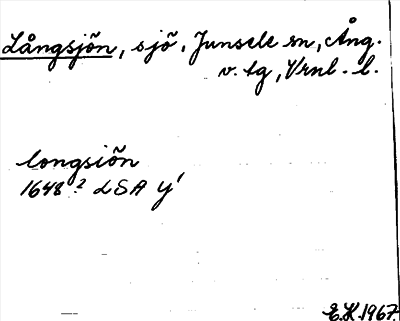 Långsjön, sjö, Junsele sn, Ång.
v. tg, Vrnl. l.
longsiön
1648? LSA Y'
E.K. 1967.